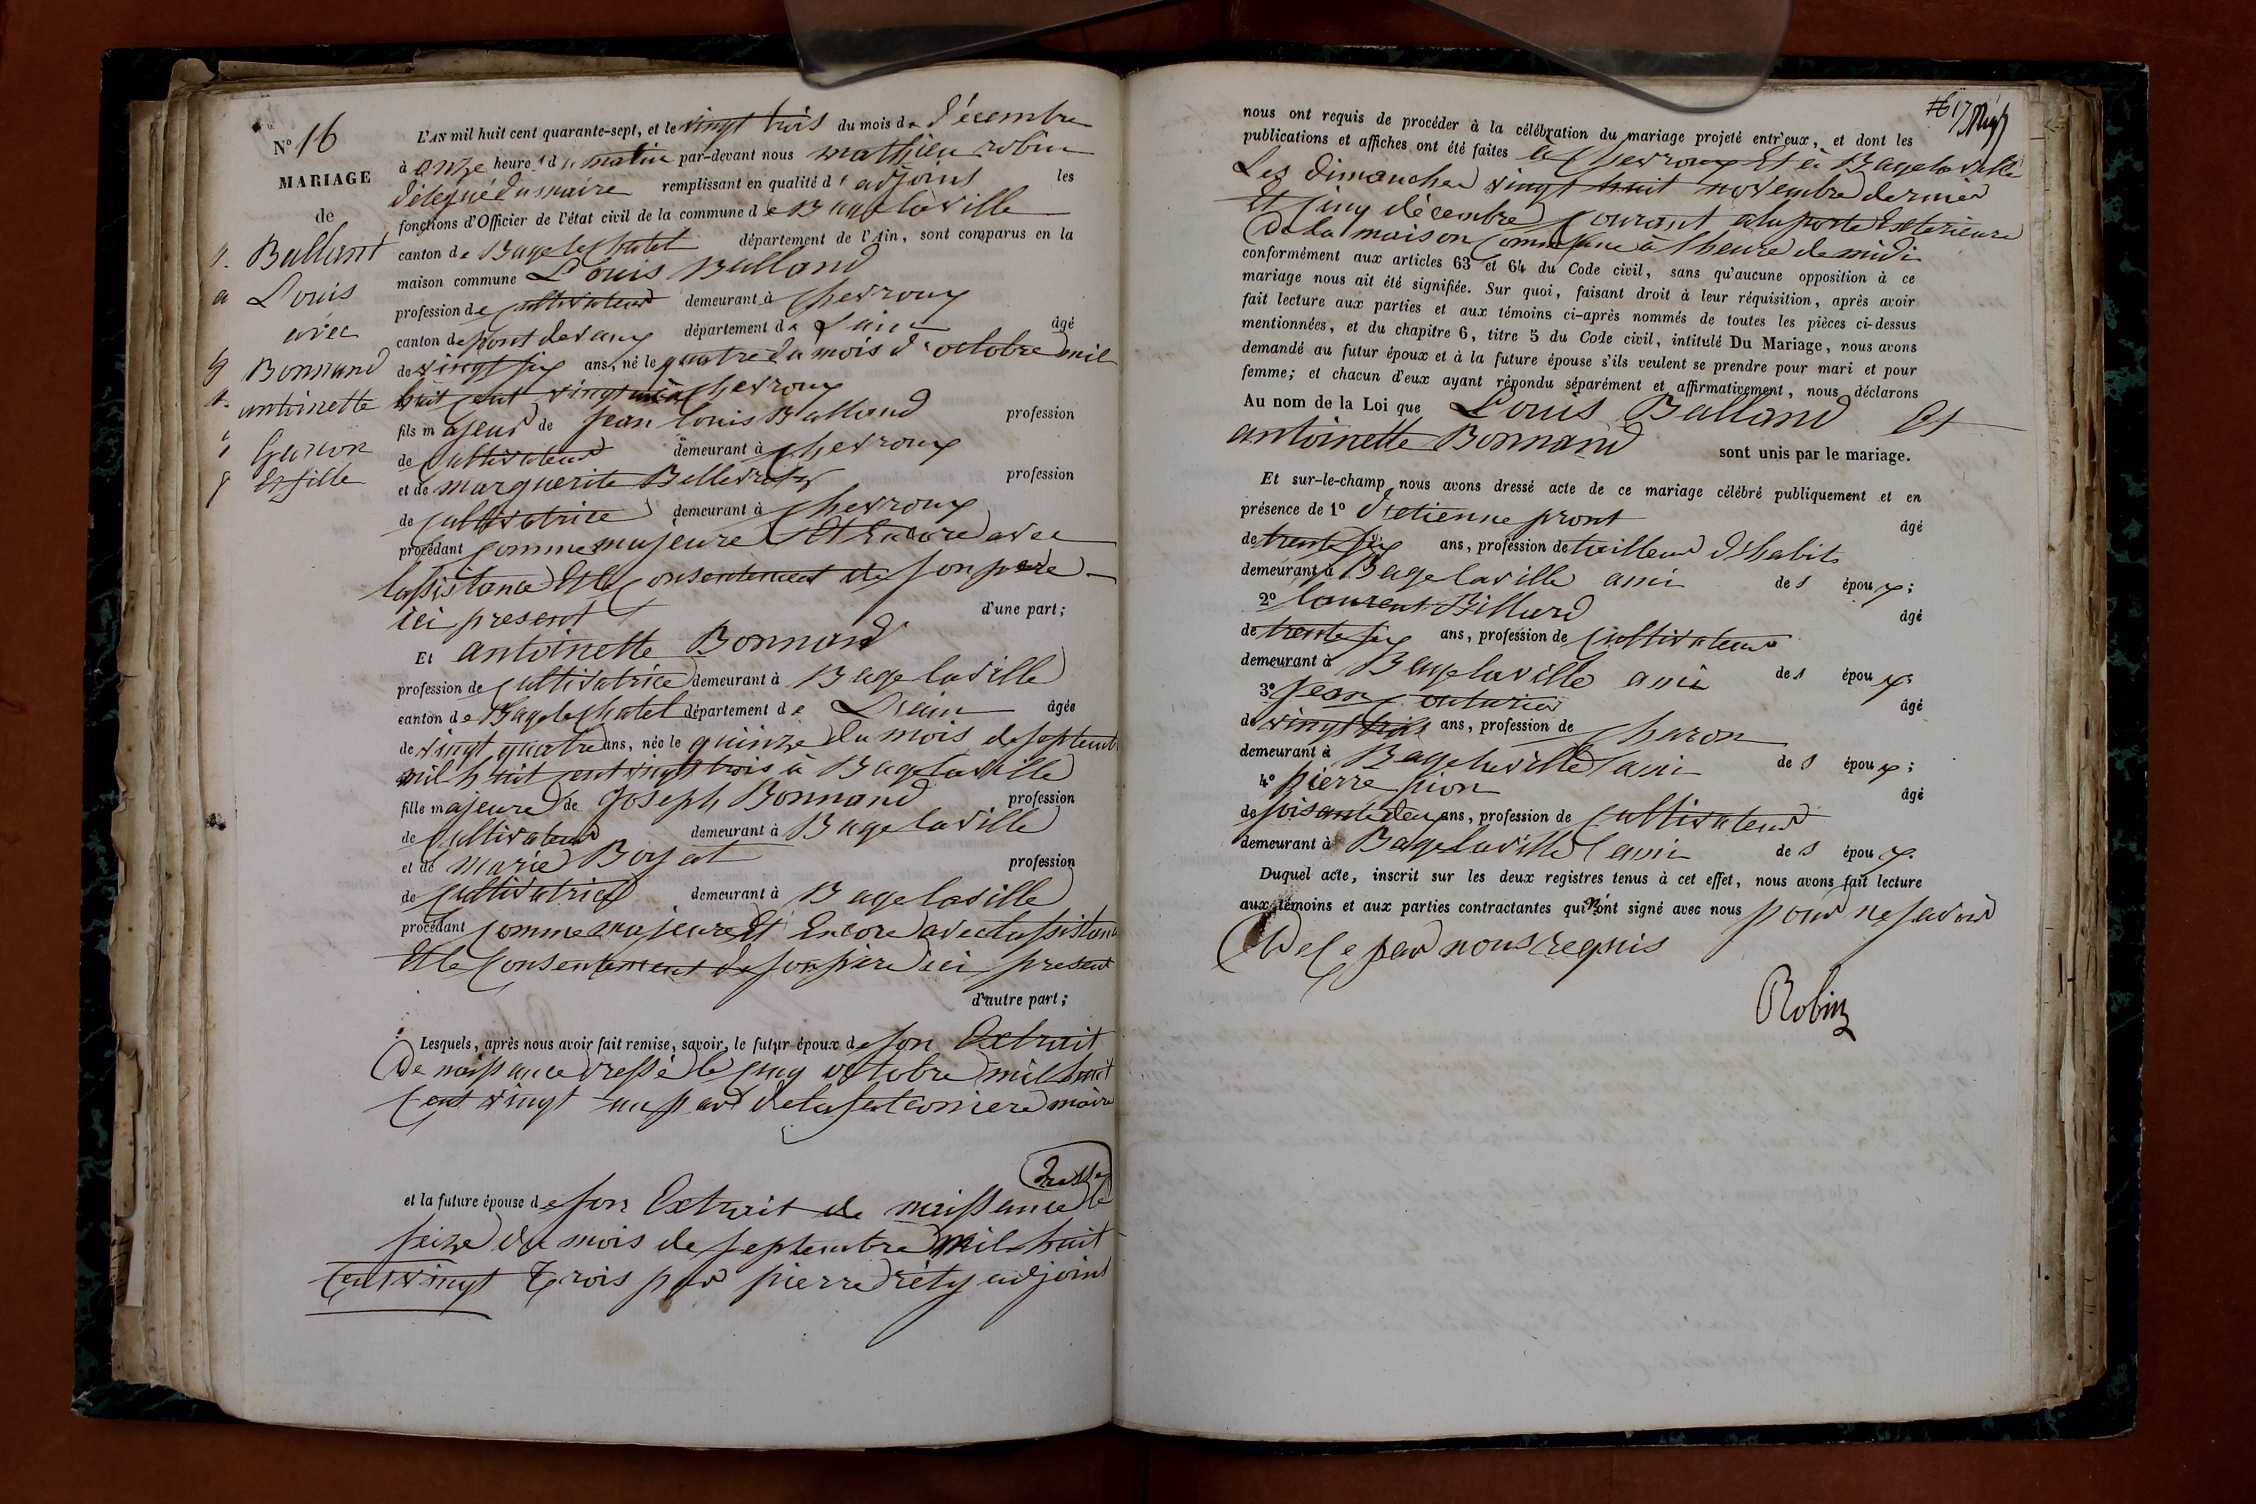 N° 16
MARIAGE
de
Balland
Louis
avec
Bonnand
antoinette
Garson
Et fille
L'AN mil huit cent quarante-sept, et le vingt trois du mois de décembre
à onze heures du matin par-devant nous mathieu robin
délégué du maire remplissant en qualité d'adjoint les
fonctions d'Officier de l'état civil de la commune de Bagé la ville
canton de Bagé le Chatel département de l'Ain, sont comparus en la
maison commune Louis Balland
profession de cultivateur demeurant à Chevroux
canton de pont de vaux département de L'ain âgé
de vingt six ans, né le quatre du mois d'octobre mil
huit cent vingt un à Chevroux
fils majeur de Jean Louis Balland profession
de Cultivateur demeurant à Chevroux
et de marguerite profession
de Cultivatrice demeurant à Chevroux
procédant Comme majeure Et Encore avec
lassistance Et le Consentement de son père
ici present d'une part;
Et antoinette Bonnand
profession de Cultivatrice demeurant à Bage la ville
canton de Bage le Chatel département de L'ain âgée
de vingt quatre ans, née le quinze du mois de septemb
mil huit cent vingt trois à Bage la ville
fille majeure de Joseph Bonnand profession
de Cultivateur demeurant à Bage la ville
et de marie Boyat profession
de Cultivatrice demeurant à Bage la ville
procédant Comme majeure Et Encore avec lassistanc
Et le Consentement de son père ici present
d'autre part;
Lesquels, après nous avoir fait remise, savoir, le futur époux de son Extrait
De naissance dressé le cinq octobre mil huit
Cent vingt un par maire
dressé
et la future épouse de son Extrait de naissance le
seize du mois de septembre mil huit
Cent vingt Trois par pierre réty adjoint
16 17
nous ont requis de procéder à la célébration du mariage projeté entr'eux, et dont les
publications et affiches ont été faites à Chevroux Et à Bage la ville
Les dimanches vingt huit novembre dernier
Et Cinq décembre Courant a la porte Exterieure
De la maison Commune à lheure de midi
conformément aux articles 63 et 64 du Code civil, sans qu'aucune opposition à ce
mariage nous ait été signifiée. Sur quoi, faisant droit à leur réquisition, après avoir
fait lecture aux parties et aux témoins ci-après nommés de toutes les pièces ci-dessus
mentionnées, et du chapitre 6, titre 5 du Code civil, intitulé Du Mariage, nous avons
demandé au futur époux et à la future épouse s'ils veulent se prendre pour mari et pour
femme; et chacun d'eux ayant répondu séparément et affirmativement, nous déclarons
Au nom de la Loi que Louis Balland Et
antoinette Bonnand sont unis par le mariage.
Et sur-le-champ nous avons dressé acte de ce mariage célébré publiquement et en
présence de 1° Etienne pront âgé
de trente six ans, profession de tailleur d'habits
demeurant à Bage la ville ami des époux;
2° laurent Billard âgé
de trente six ans, profession de Cultivateur
demeurant à Bage la ville ami des époux
3° Jean Couturier âgé
de vingt trois ans, profession de Charon
demeurant à Bage la ville ami des époux;
4° pierre pion âgé
de soisante deux ans, profession de Cultivateur
demeurant à Bage la ville ami des époux.
Duquel acte, inscrit sur les deux registres tenus à cet effet, nous avons fait lecture
aux témoins et aux parties contractantes qui n'ont signé avec nous pour ne savoir
De Ce par nous requis
Robin